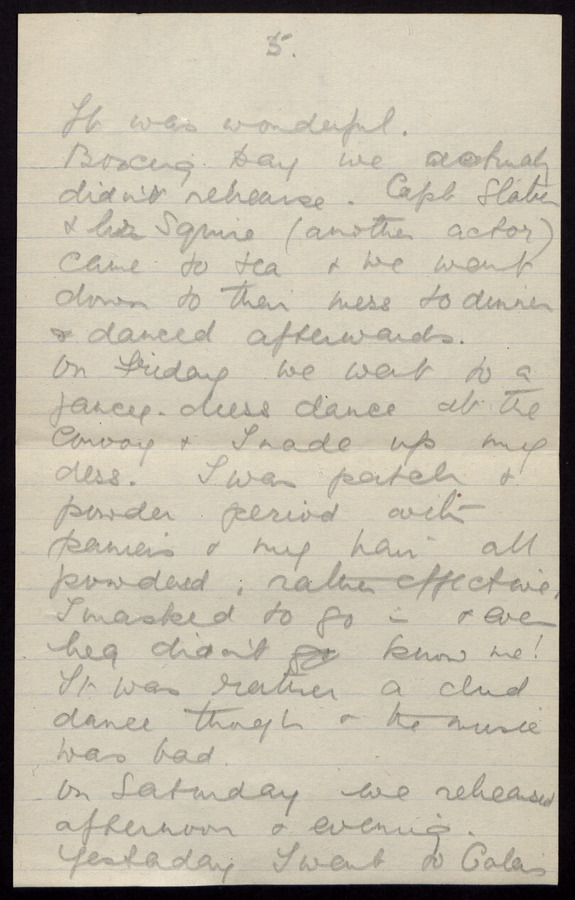 5.
It was wonderful.
Boxing Day we actually
didn't rehearse. Capt Slater
& Squire (another actor)
came to tea & we went
down to their mess to dinner
& danced afterwards.
On Friday we went to a
fancy-dress dance at the
Convoy & I made up my
dess. I was patch &
powder period with
paniers & my hair all
powdered; rather effective,
I masked to go in & even
didn't know me!
It was rather a dud
dance though & the music
was bad.
On Saturday we rehearsed
afternoon & evening.
Yesterday I went to Calais